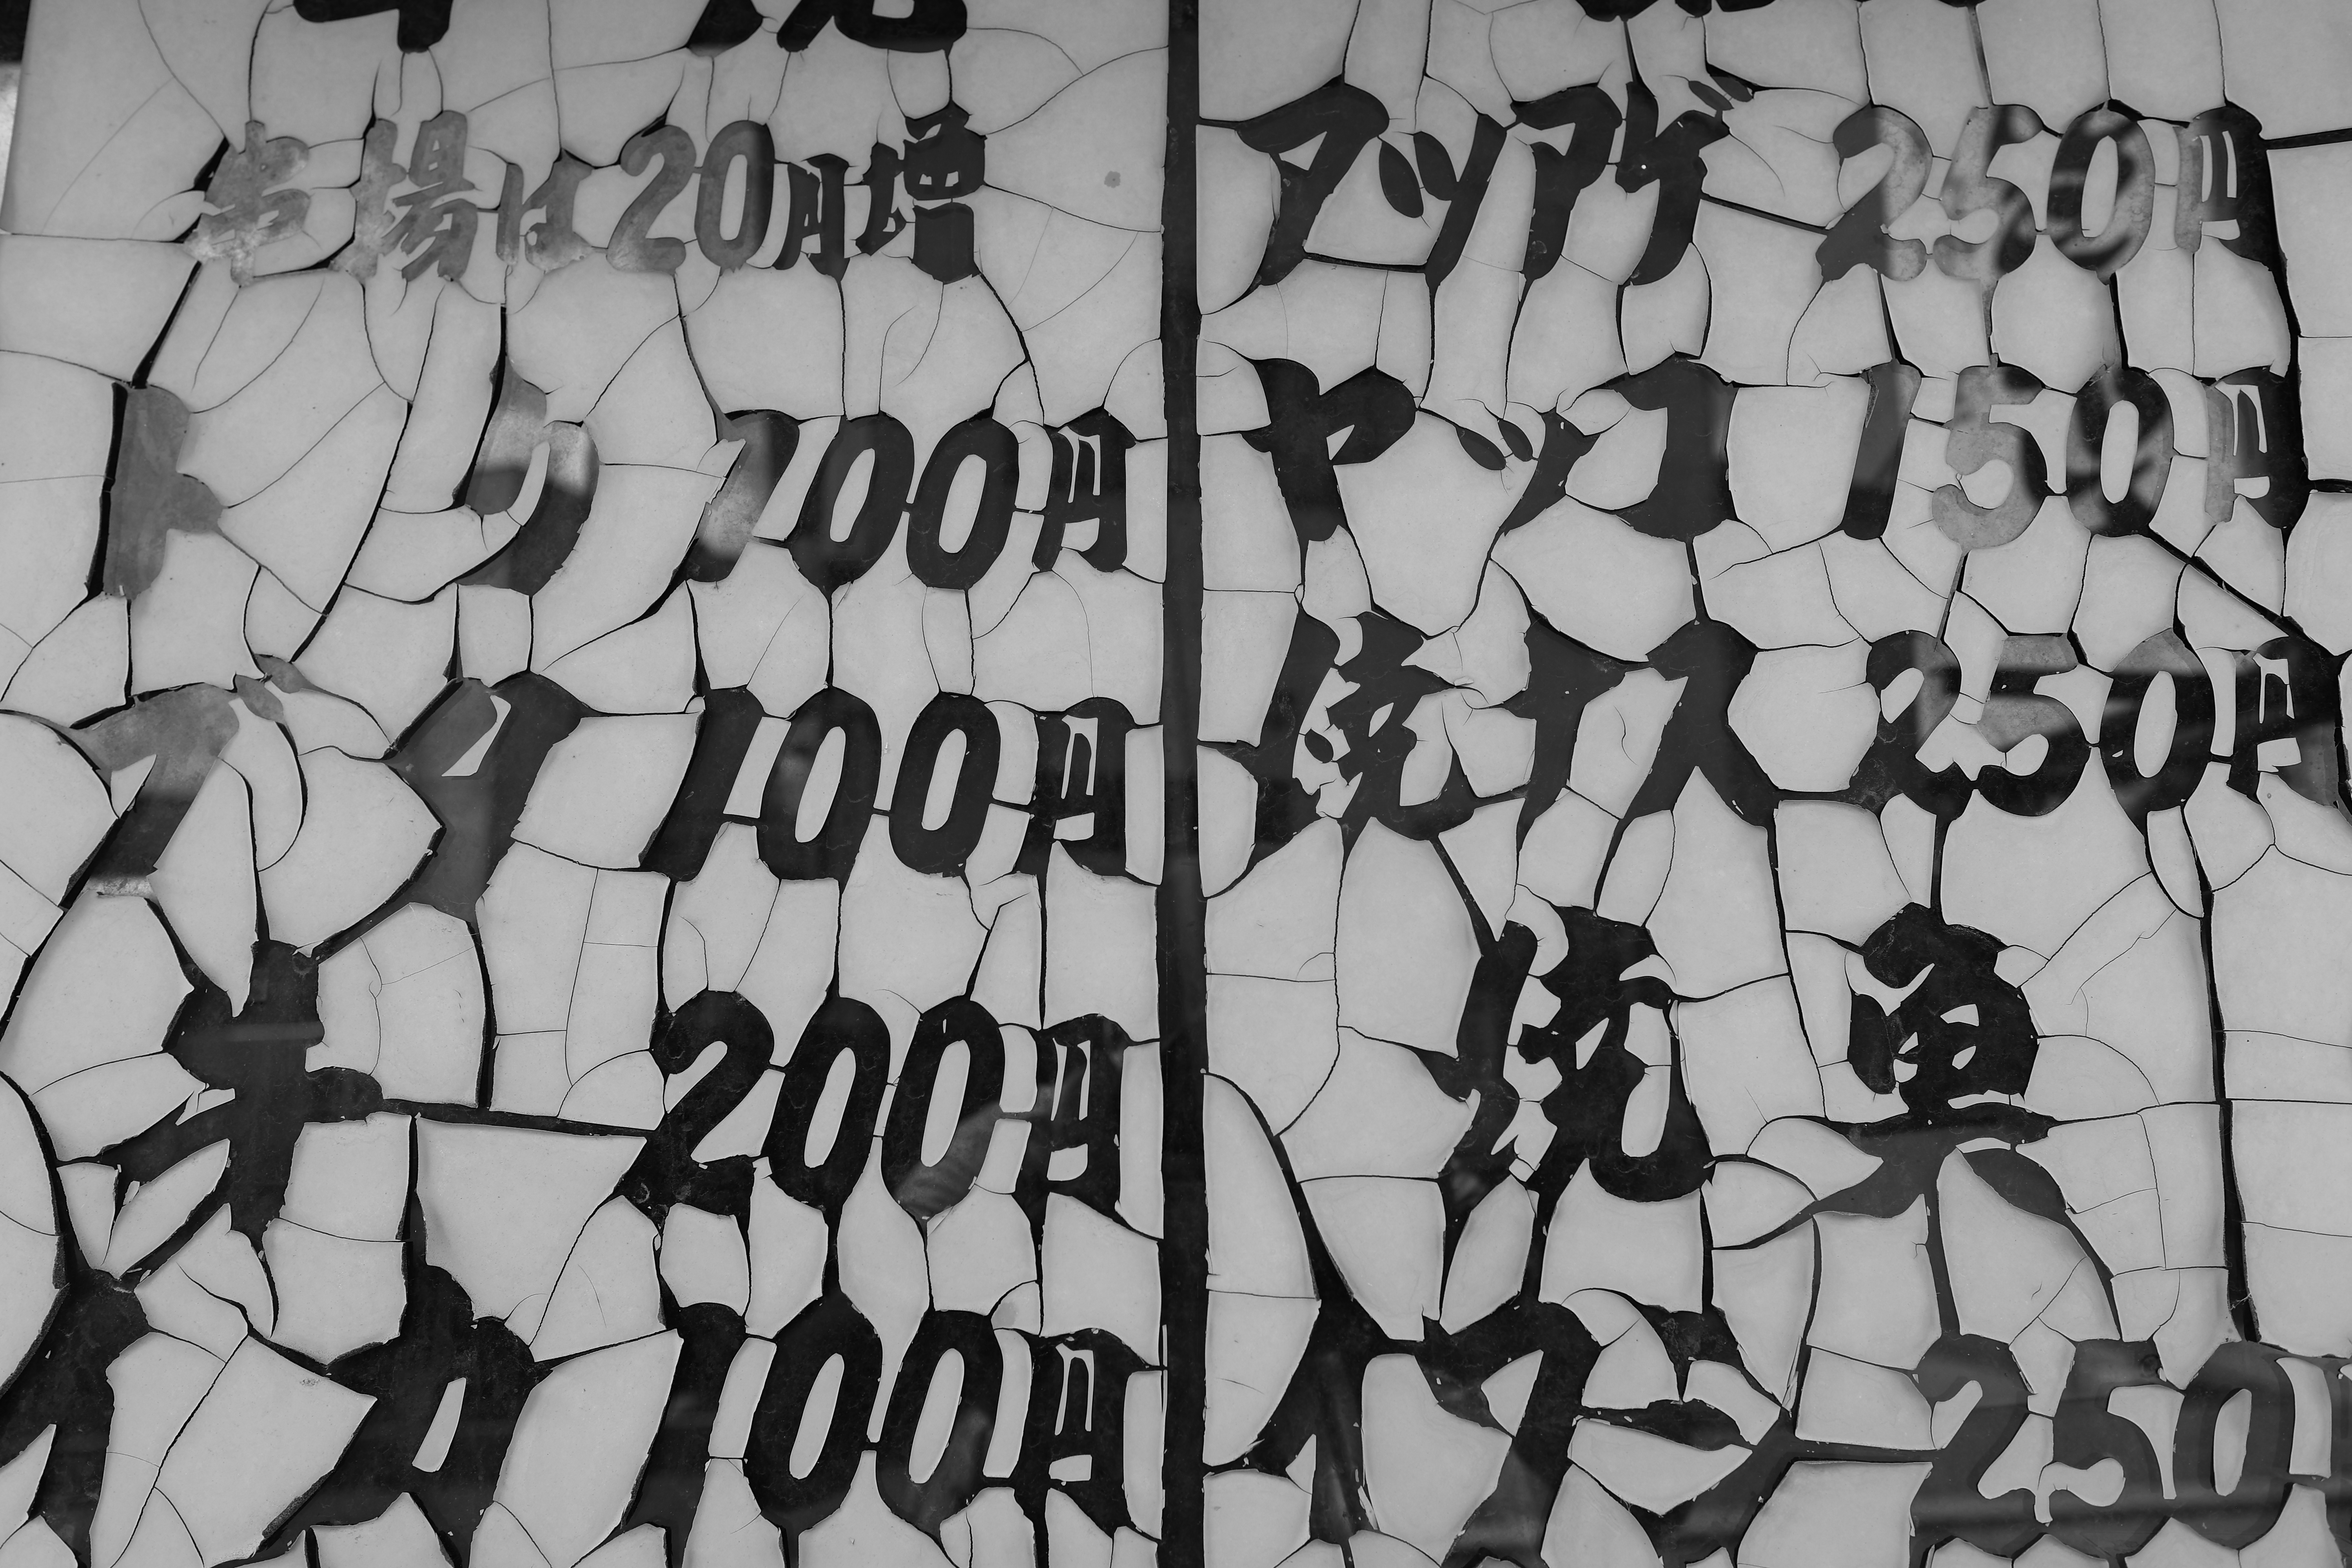 場は20円増
トリ 100円
ブタ 100円
牛 200円
イカ 100円
アツアゲ 250円
ヤッコ 150円
焼ナス 250円
焼魚
イワシ 250